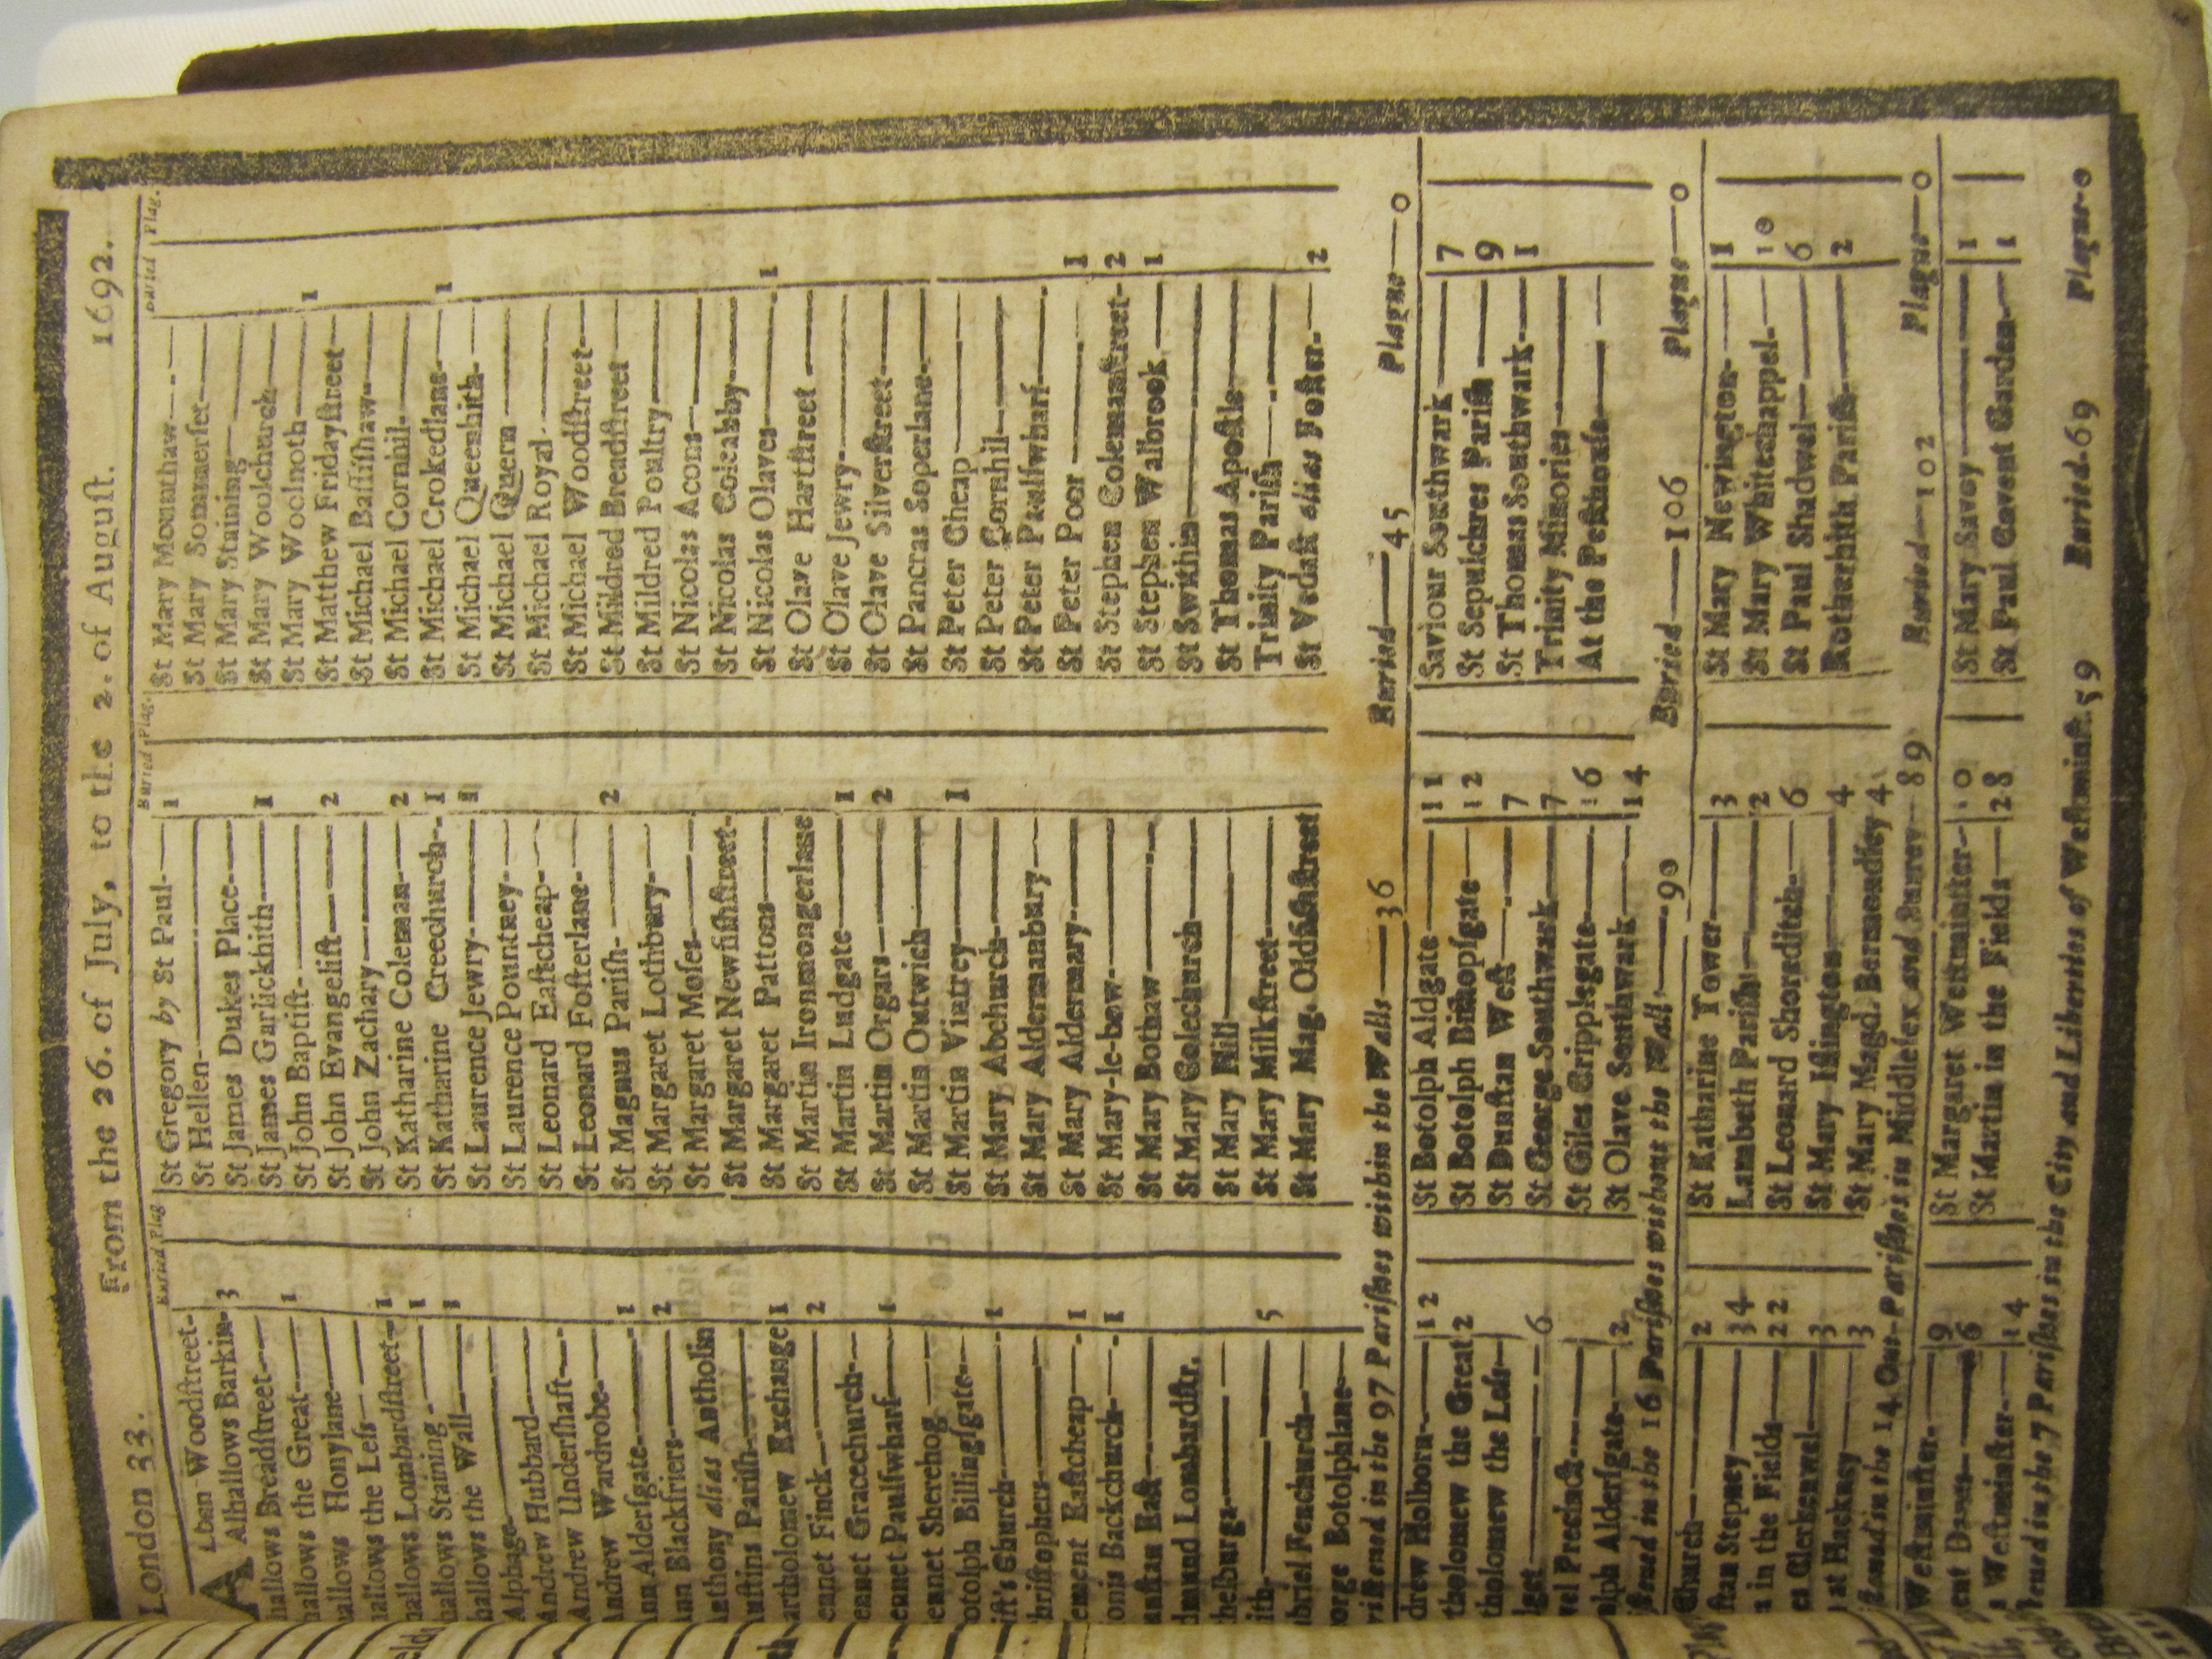 London 33. From the 26. of July, to the 2. of August. 1692.
Buried Plag
ALban Woodſtreet-
Alhallows Barkin- 3
hallows Breadſtreet
hallows the Great 1
hallows Honylane
hallows the Leſs
hallows Lombardſtreet- 1
hallows Staining 1
hallows the Wall 1
Alphage
Andrew Hubbard
Andrew Underſhaft
Andrew Wardrobe
Ann Alderſgate 1
Ann Blackfriers 2
Anthony alias Antholin
uſtins Pariſh
artholomew Exchange 1
ennet Finck 2
ennet Gracechurch
ennet Paulſwharf 1
ennet Sherehog
otolph Billingſgate
iſt's Church 1
hriſtophers
ement Eaſtcheap 1
onis Backchurch 1
unſtan Eaſt
dmund Lombardſtr.
helburga
ith 5
briel Fenchurch
orge Botolphlane
Buried Plag.
St Gregory by St Paul 1
St Hellen
St James Dukes Place
St James Garlickhith 1
St John Baptiſt
St John Evangeliſt 2
St John Zachary
St Katharine Coleman 2
St Katharine Creechurch 1
St Laurence Jewry 1
St Laurence Pountney
St Leonard Eaſtcheap
St Leonard Foſterlane
St Magnus Pariſh 2
St Margaret Lothbury
St Margaret Moſes
St Margaret Newfiſhſtreet
St Margaret Pattons
St Martin Ironmongerlane
St Martin Ludgate 1
St Martin Orgars 2
St Martin Outwich
St Martin Vintrey 1
St Mary Abchurch
St Mary Aldermanbury
St Mary Aldermary
St Mary-le-bow
St Mary Bothaw
St Mary Colechurch
St Mary Hill
St Mary Milkſtreet
St Mary Mag. Oldfiſhſtreet
Buried Plag.
St Mary Mounthaw
St Mary Sommerſet
St Mary Staining
St Mary Woolchurch
St Mary Woolnoth 1
St Matthew Fridayſtreet
St Michael Baſſiſhaw
St Michael Cornhil
St Michael Crokedlane 1
St Michael Queenhith
St Michael Quern
St Michael Royal
St Michael Woodſtreet
St Mildred Breadſtreet
St Mildred Poultry
St Nicolas Acons
St Nicolas Coleabby
St Nicolas Olaves 1
St Olave Hartſtreet
St Olave Jewry
St Olave Silverſtreet
St Pancras Soperlane
St Peter Cheap
St Peter Cornhil
St Peter Paulſwharf
St Peter Poor 1
St Stephen Colemanſtreet 2
St Stephen Walbrook 1
St Swithin
St Thomas Apoſtle
Trinity Pariſh
St Vedaſt alias Foſter 2
riſtened in the 97 Pariſhes within the Walls 36 Buried 45 Plague 0
drew Holborn 12
tholomew the Great 2
tholomew the Leſs
6
el Precinct
olph Alderſgate 2
St Botolph Aldgate 11
St Botolph Biſhopſgate 12
St Dunſtan Weſt 7
St George Southwark 7
St Giles Cripplegate 16
St Olave Southwark 14
Saviour Southwark 7
St Sepulchres Pariſh 9
St Thomas Southwark 1
Trinity Minories
At the Peſthouſe
ſtened in the 16 Pariſhes without the Wall 90 Buried 106 Plague 0
Church 2
ſtan Stepney 34
s in the Fields 22
es Clerkenwel 3
at Hackney 3
St Katharine Tower 3
Lambeth Pariſh 2
St Leonard Shoreditch 6
St Mary Iſlington 4
St Mary Magd. Bermondſey 4
St Mary Newington 1
St Mary Whitechappel 10
St Paul Shadwel 6
Rotherhith Pariſh 2
ſtened in the 14 Out-Pariſhes in Middleſex and Surrey 89 Buried 102 Plague 0
Weſtminſter 9
ent Danes 6
s Weſtminſter 14
St Margaret Weſtminſter 10
St Martin in the Fields 28
St Mary Savoy 1
St Paul Covent Garden 1
ſtened in the 7 Pariſhes in the City and Liberties of Weſtminſt. 59 Buried 69 Plague 0